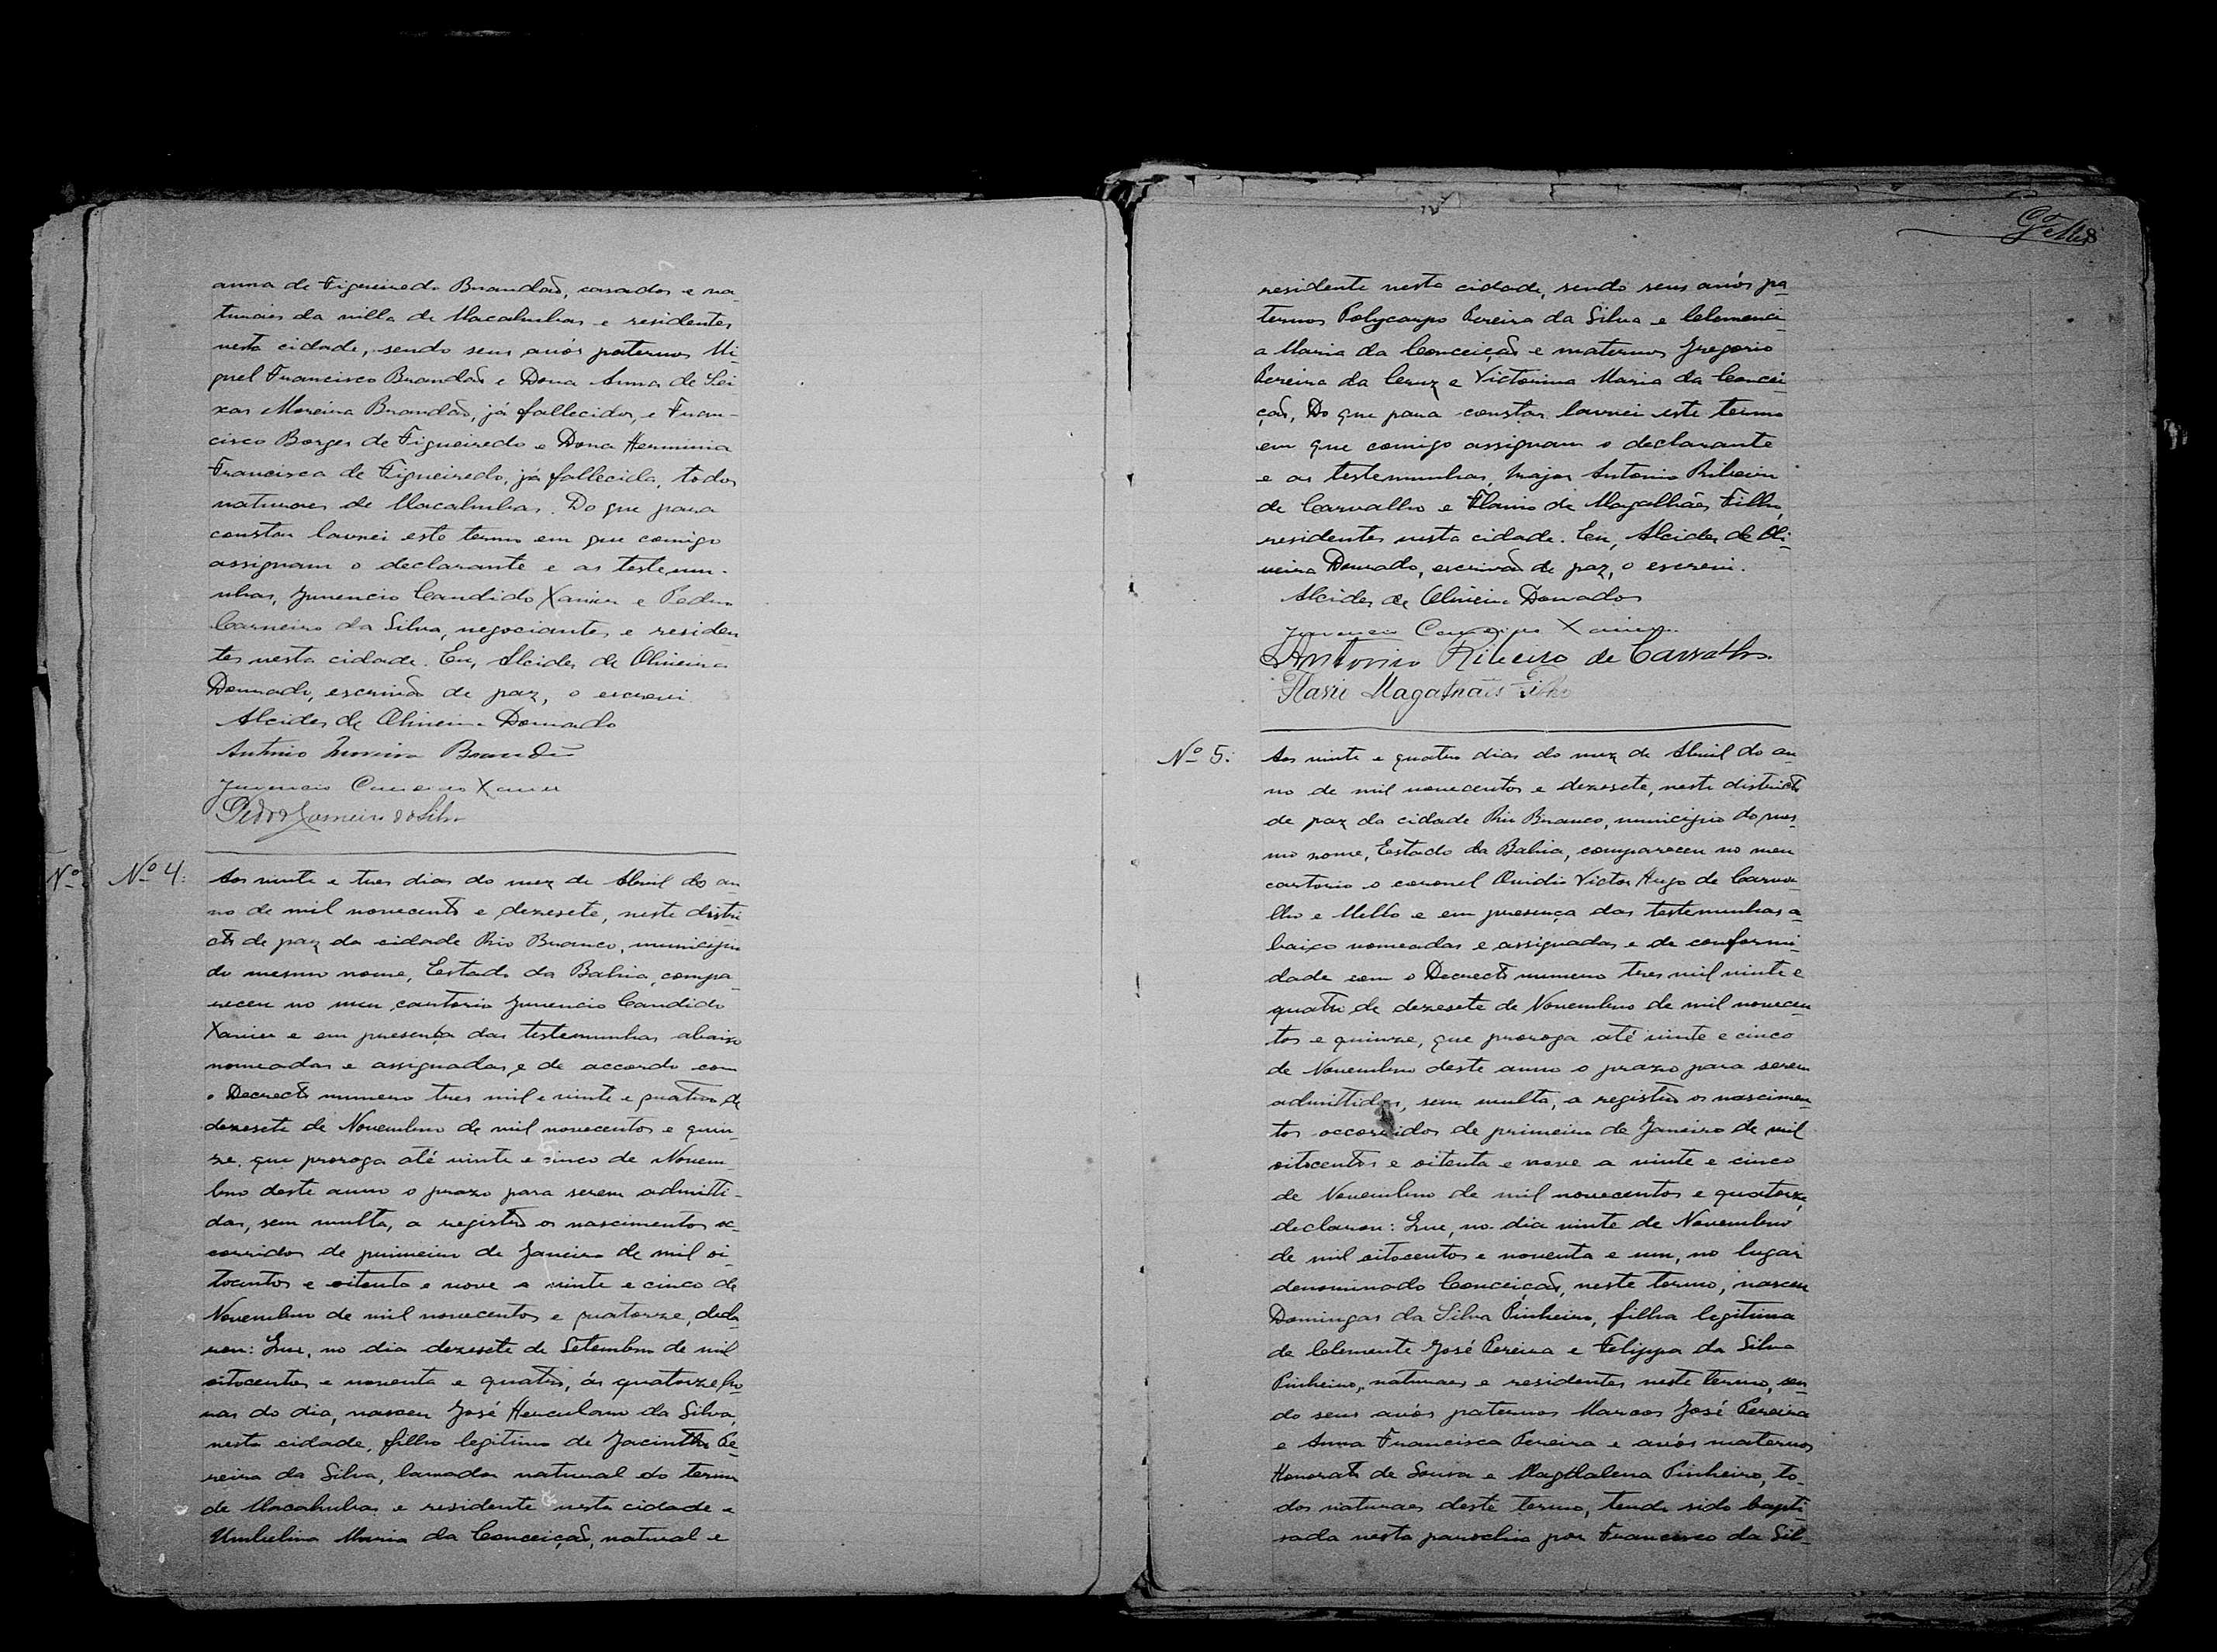 anna de Figueiredo Brandão, casados e na-
turaes da villa de Macahubas e residentes
nesta cidade, sendo seus avós paternos Mi-
guel Francisco Brandão e Dona Anna de Sei-
xas Moreira Brandão, já fallecidos, e Fran-
cisco Borges de Figueiredo e Dona Herminia
Francisca de Figueiredo, já fallecida, todos
naturaes de Macahubas. Do que para
constar lavrei este termo em que comigo
assignam o declarante e as testemu-
nhas, Juvencio Candido Xavier e Pedro
Carneiro da Silva, negociantes e residen
tes nesta cidade. Eu, Alcides de Oliveira
Dourado, escrivão de paz, o escrevi.
Alcides de Oliveira Dourado
Antonio Moreira Brandão
Juvencio Candido Xavier
Pedro Carneiro da Silva
Nº
Nº 4:
Aos vinte e tres dias do mez de Abril do an-
no de mil novecentos e dezesete, neste distri
cto de paz da cidade Rio Branco, municipio
do mesmo nome, Estado da Bahia, compa-
receu no meu cartorio Juvencio Candido
Xavier e em presença das testemunhas abaixo
nomeadas e assignadas e de accordo com
o Decrecto numero tres mil e vinte e quatro de
dezesete de Novembro de mil novecentos e quin-
ze, que proroga até vinte e cinco de Novem-
bro deste anno o prazo para serem admitti-
dos, sem multa, a registro os nascimentos oc-
corridos de primeiro de Janeiro de mil oi-
tocentos e oitenta e nove a vinte e cinco de
Novembro de mil novecentos e quatorze, decla-
rou: Que, no dia dezesete de Setembro de mil
oitocentos e noventa e quatro, ás quatorze ho-
ras do dia, nasceu José Herculano da Silva,
nesta cidade, filho legitimo de Jacintho Pe-
reira da Silva, lavrador natural do termo
de Macahubas e residente nesta cidade e
Umbelina Maria da Conceição, natural e
8
residente nesta cidade, sendo seus avós pa-
ternos Polycarpo Pereira da Silva e Clemenci-
a Maria da Conceição e maternos Gregorio
Pereira da Cruz e Victorina Maria da Concei
ção, Do que para constar lavrei este termo
em que comigo assignam o declarante
e as testemunhas, Major Antonio Ribeiro
de Carvalho e Flavio de Magalhães Filho,
residentes nesta cidade. Eu, Alcides de Oli-
veira Dourado, escrivão de paz, o escrevi.
Alcides de Oliveira Dourado
Juvencio Candido Xavier
Antonio Ribeiro de Carvalho
Flavio Magalhães Filho
Nº 5:
Aos vinte e quatro dias do mez de Abril do an-
no de mil novecentos e dezesete, neste districto
de paz da cidade Rio Branco, municipio do mes-
mo nome, Estado da Bahia, compareceu no meu
cartorio o coronel Ovidio Victor Hugo de Carva-
lho e Mello e em presença das testemunhas a-
baixo nomeadas e assignadas e de conformi-
dade com o Decrecto numero tres mil vinte e
quatro de dezesete de Novembro de mil novecen-
tos e quinze, que proroga até vinte e cinco
de Novembro deste anno o prazo para serem
admittidos, sem multa, a registro os nascimen-
tos occorridos de primeiro de Janeiro de mil
oitocentos e oitenta e nove a vinte e cinco
de Novembro de mil novecentos e quatorze,
declarou: Que, no dia vinte de Novembro
de mil oitocentos e noventa e um, no lugar
denominado Conceição, neste termo, nasceu
Domingas da Silva Pinheiro, filha legitima
de Clemente José Pereira e Felippa da Silva
Pinheiro, naturaes e residentes neste termo, sen-
do seus avós paternos Marcos José Pereira
e Anna Francisca Pereira e avós maternos
Honorato de Sousa e Magdalena Pinheiro, to-
dos naturaes deste termo, tendo sido bapti-
sada nesta parochia por Francisco da Sil-